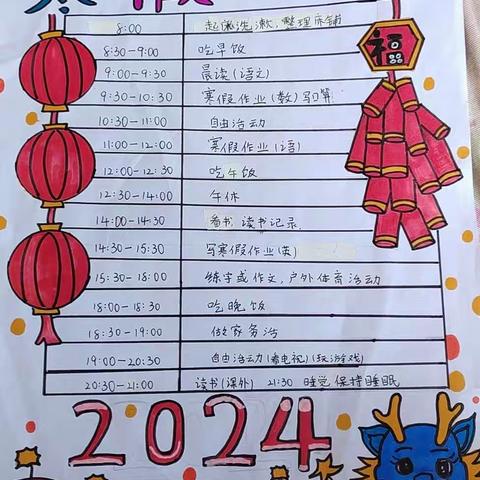 寒 作
8:00 起床洗漱,整理床铺
8:30-9:00 吃早饭
9:00-9:30 晨读(语文)
9:30-10:30 寒假作业(数)写口算
10:30-11:00 自由活动
11:00-12:00 寒假作业(语)
12:00-12:30 吃午饭
12:30-14:00 午休
14:00-14:30 看书 读书记录.
14:30-15:30 写寒假作业(英)
15:30-18:00 练字或作文,户外体育活动
18:00-18:30 吃晚饭
18:30-19:00 做家务活
19:00-20:30 自由活动(看电视)(玩游戏)
20:30-21:00 读书(课外) 21:30 睡觉 保持睡眠
福
2024